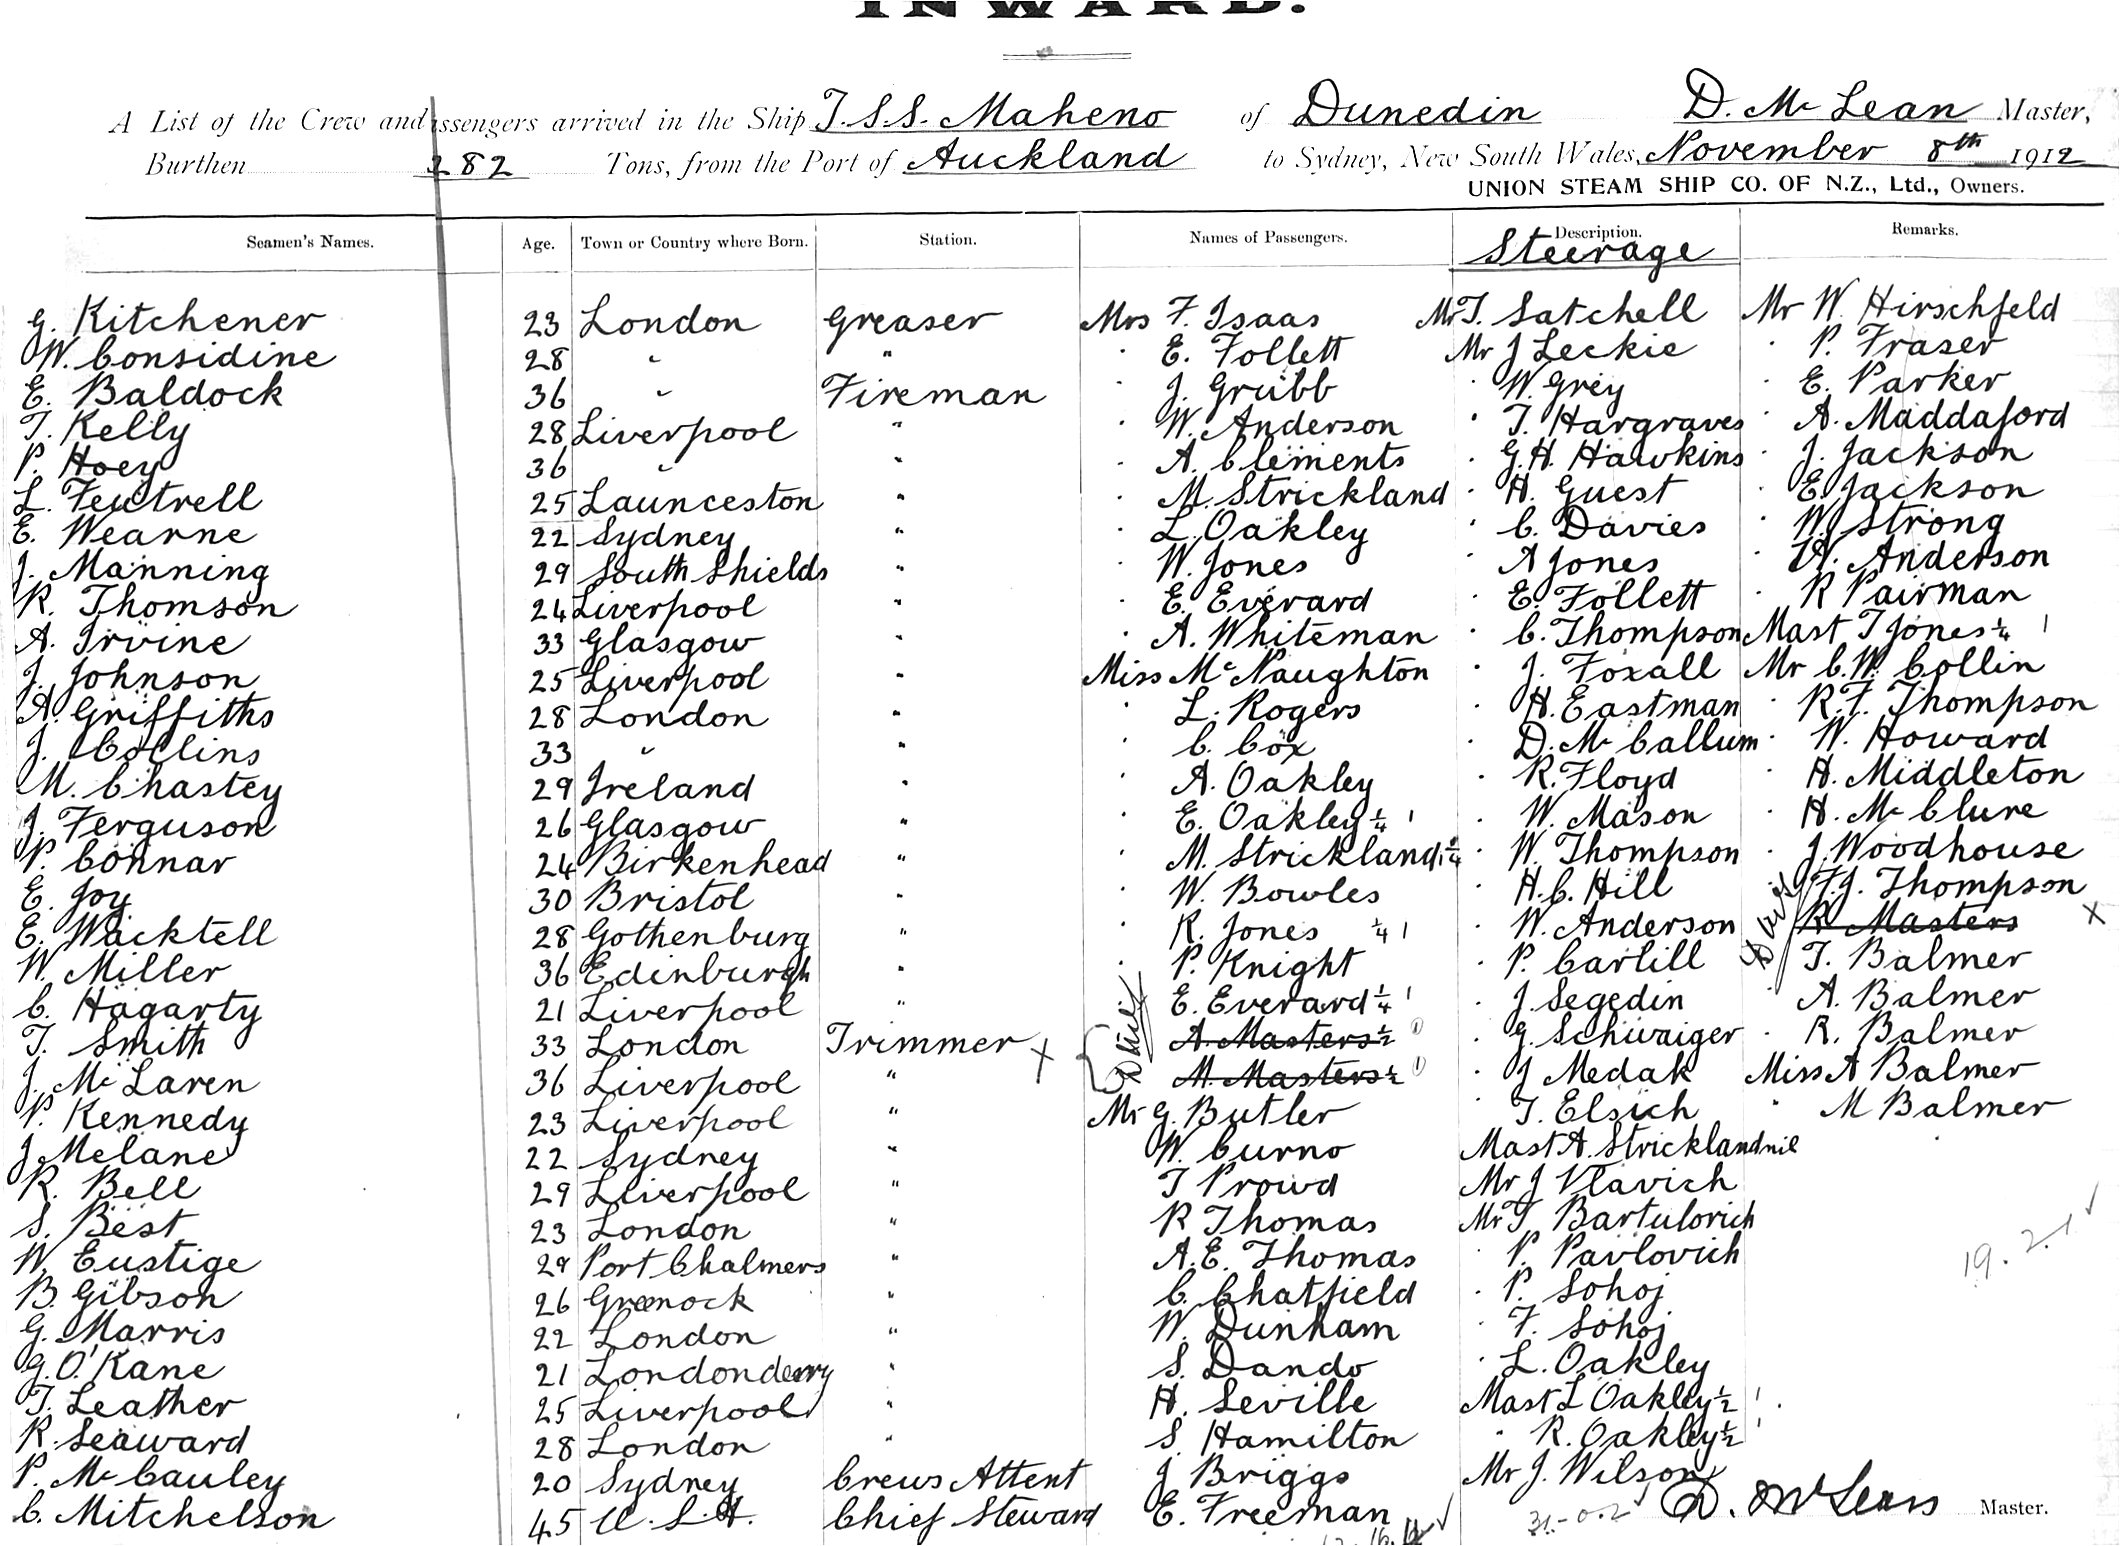 INWARD.
A List of the Crew and Passengers arrived in the Ship T.S.S. Maheno of Dunedin D. Mc Lean Master,
Burthen 282 Tons, from the Port of Auckland to Sydney, New South Wales, November 8th 1912
UNION STEAM SHIP CO. OF N.Z., Ltd., Owners.
Seamen's Names. Age. Town or Country where Born. Station. Names of Passengers. Description. Remarks.
Steerage
G. Kitchener 23 London Greaser Mrs F. Isaas Mr T. Satchell Mr W. Hirschfeld
W. Considine 28 " " · E. Follett Mr J Leckie · P. Fraser
E. Baldock 36 " Fireman · J. Grubb · W. Grey · E. Parker
T. Kelly 28 Liverpool " · W. Anderson · T. Hargraves · A. Maddaford
P. Hoey 36 " " · A. Clements · G.H. Hawkins · J. Jackson
L. Feutrell 25 Launceston " · M. Strickland · H. Guest · E. Jackson
E. Wearne 22 Sydney " · L. Oakley · C. Davies · W. Strong
J. Manning 29 South Shields " · W. Jones · A Jones · A. Anderson
R. Thomson 24 Liverpool " · E. Everard · E. Follett · R Pairman
A. Irvine 33 Glasgow " · A. Whiteman · C. Thompson Mast T Jones 1/4 1
J. Johnson 25 Liverpool " Miss Mc Naughton · J. Foxall Mr C.W. Collin
A. Griffiths 28 London " · L. Rogers · H. Eastman · R.F. Thompson
J. Collins 33 " " · C. Cox · D. Mc Callum · W. Howard
M. Chastey 29 Ireland " · A. Oakley · R. Floyd · H. Middleton
J. Ferguson 26 Glasgow " · E. Oakley 1/4 1 · W. Mason · H. Mc Clure
P. Connar 24 Birkenhead " · M. Strickland 1/4 · W. Thompson · J. Woodhouse
E. Joy 30 Bristol " · W. Bowles · H.C. Hill F.J. Thompson
E. Wacktell 28 Gothenburg " · R. Jones 1/4 1 · W. Anderson R Masters X
W. Miller 36 Edinburgh " · P. Knight · P. Carlill T. Balmer
C. Hagarty 21 Liverpool " E. Everard 1/4 1 · J. Segedin · A. Balmer
T. Smith 33 London Trimmer X A. Masters 1/2 1 · G. Schwaiger · R. Balmer
J. Mc Laren 36 Liverpool " M. Masters 1/2 1 · J Medak Miss A Balmer
P. Kennedy 23 Liverpool " Mr G. Butler · T. Elsich " M Balmer
J Melane 22 Sydney " W. Curno Mast A. Strickland nil
R. Bell 29 Liverpool " T Prowd Mr J Vlavich
S. Best 23 London " R Thomas Mr T Bartulovich
W. Eustige 29 Port Chalmers " A.E. Thomas · P. Pavlovich
B. Gibson 26 Greenock " C. Chatfield · P. Sohoj
G. Marris 22 London " W. Dunham · F. Sohoj
G. O'Kane 21 Londonderry " S. Dando · L. Oakley
T. Leather 25 Liverpool " H. Seville Mast L Oakley 1/2 1
R. Seaward 28 London " S. Hamilton " R. Oakley 1/2 1
P. Mc Cauley 20 Sydney Crews Attent J Briggs Mr J. Wilson
C. Mitchelson 45 U.S.A. Chief Steward E. Freeman
19.2.1
31-0.2
D. McLean Master.